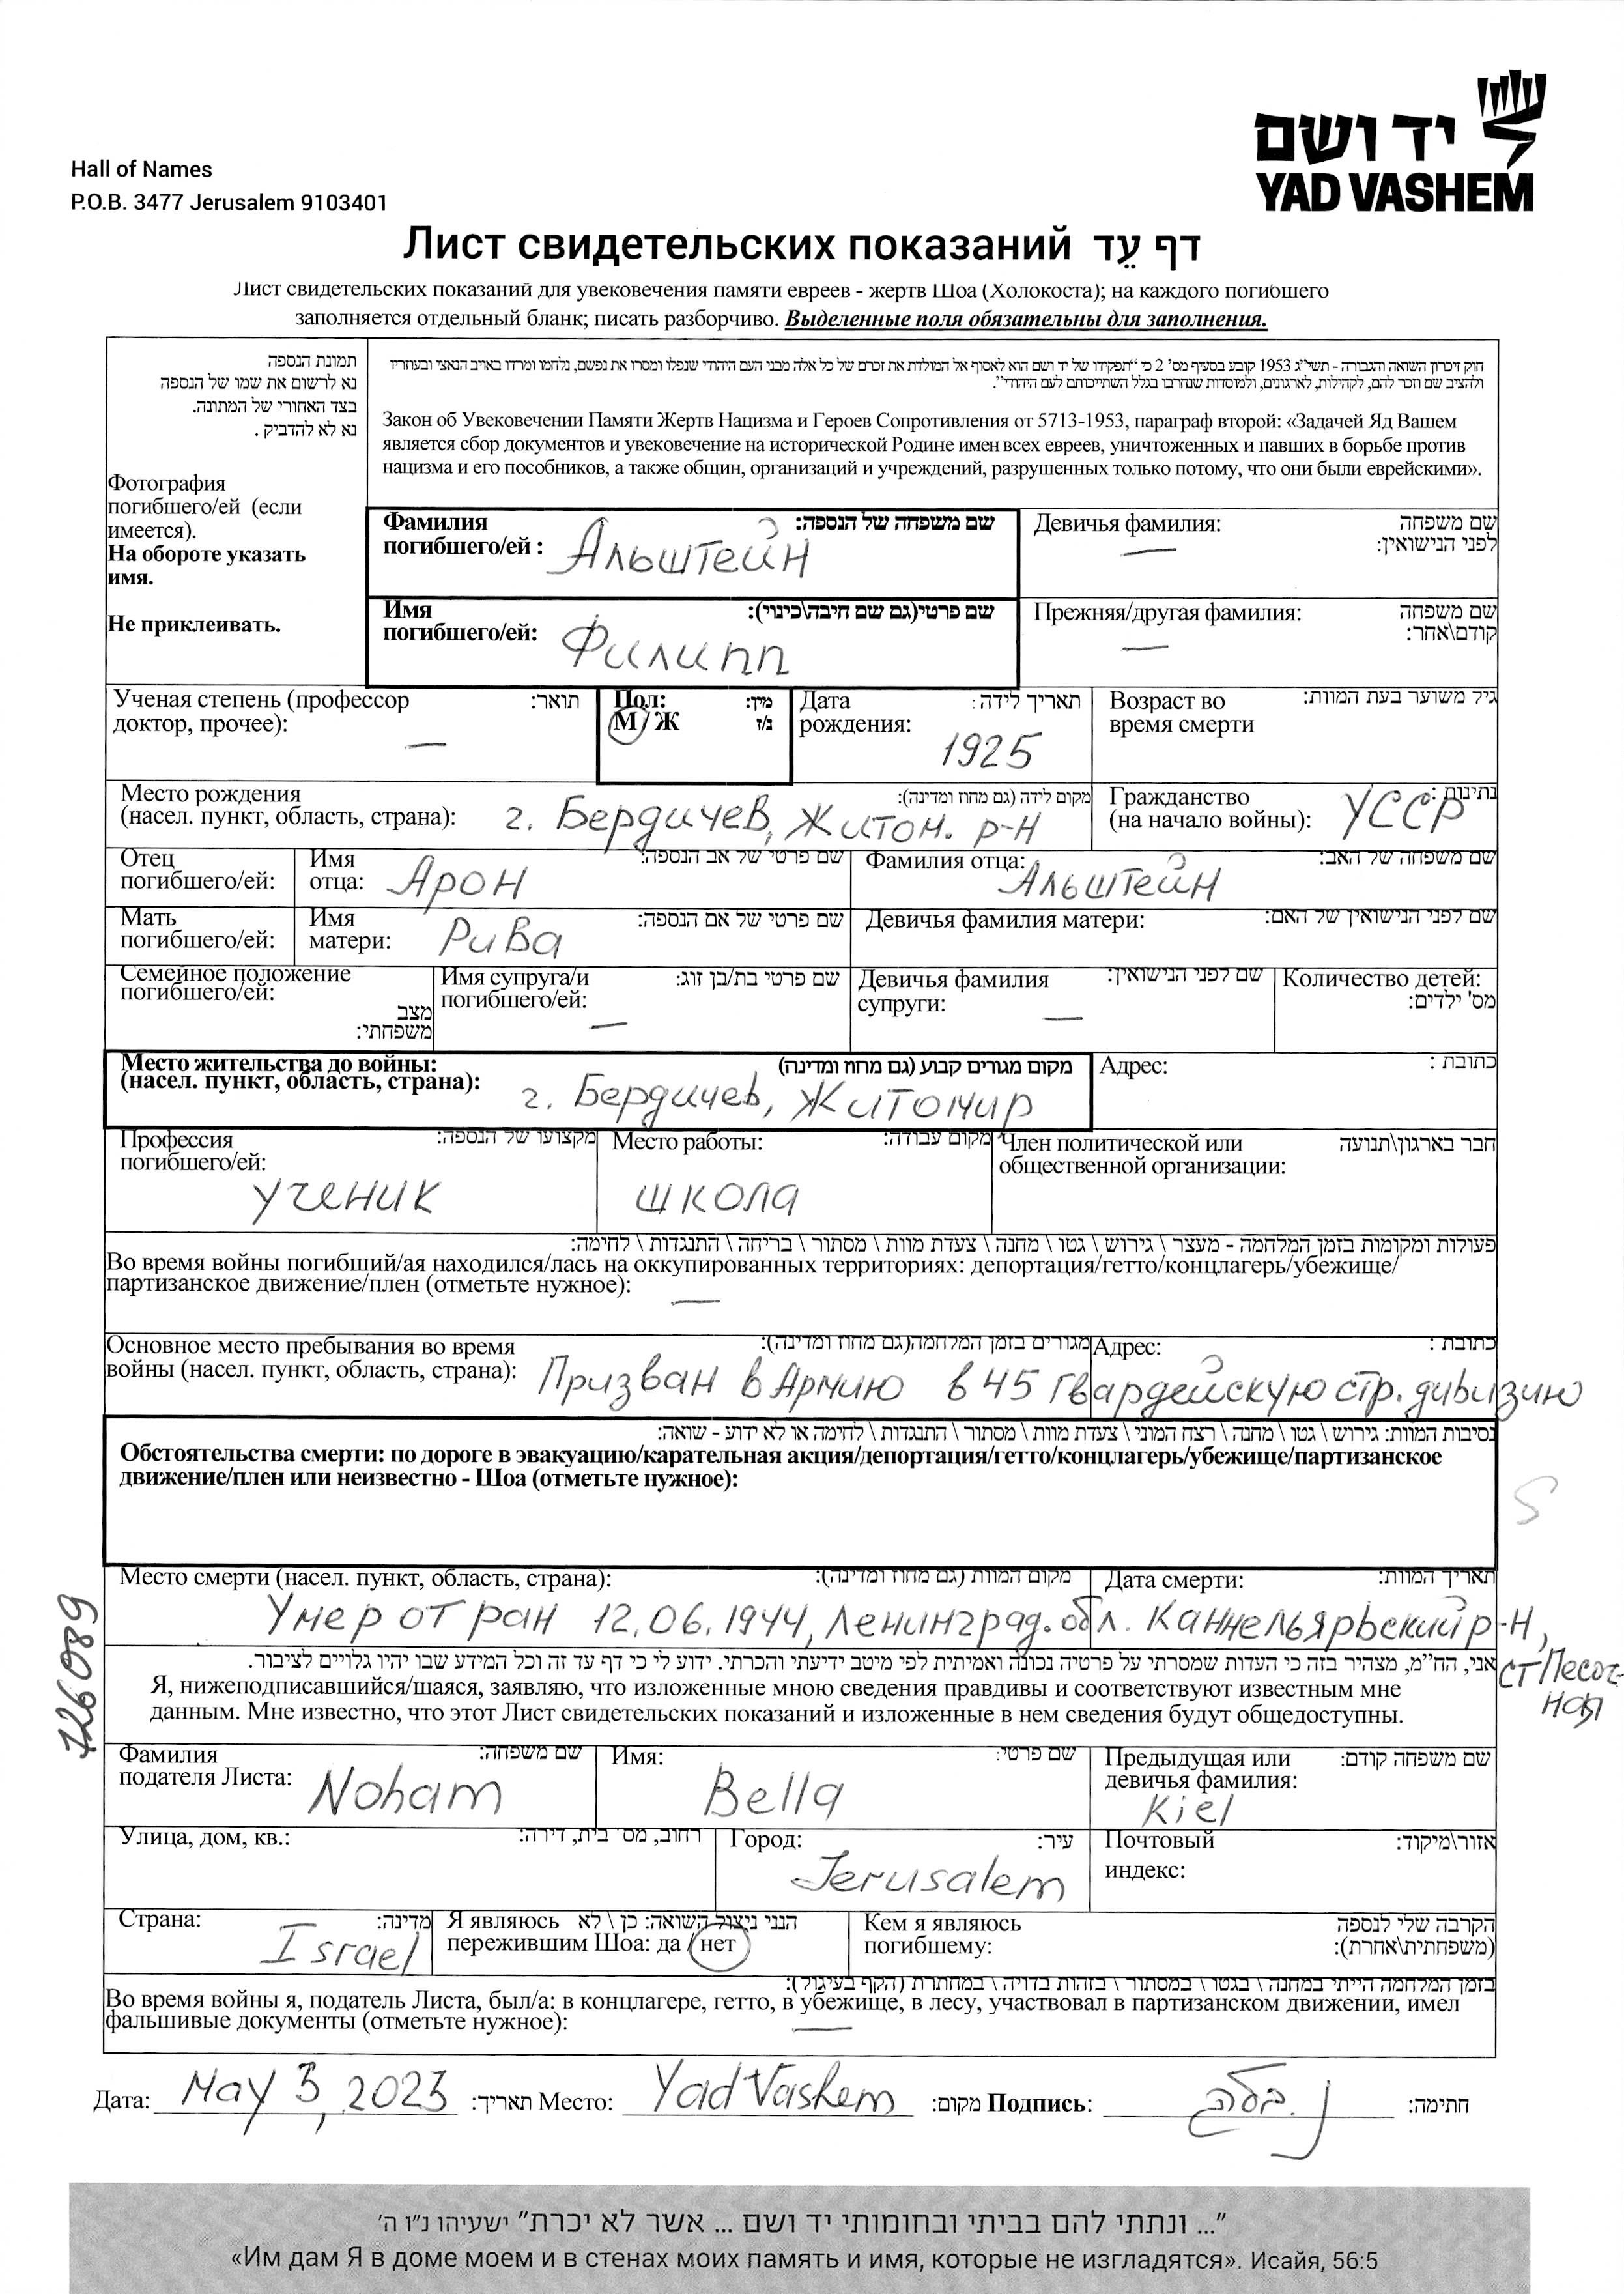 יד ושם
YAD VASHEM
Hall of Names
P.O.B. 3477 Jerusalem 9103401
Лист свидетельских показаний דף עֵד
Лист свидетельских показаний для увековечения памяти евреев - жертв Шоа (Холокоста); на каждого погибшего
заполняется отдельный бланк; писать разборчиво. Выделенные поля обязательны для заполнения.
תמונת הנספה
נא לרשום את שמו של הנספה
בצד האחורי של המתונה.
נא לא להדביק .
Фотография
погибшего/ей (если
имеется).
На обороте указать
имя.
Не приклеивать.
חוק זיכרון השואה והגבורה - תשי"ג 1953 קובע בסעיף מס' 2 כי "תפקידו של יד ושם הוא לאסוף אל המולדת את זכרם של כל אלה מבני העם היהודי שנפלו ומסרו את נפשם, נלחמו ומרדו באויב הנאצי ובעוזריו
ולהציב שם וזכר להם, לקהילות, לארגונים, ולמוסדות שנחרבו בגלל השתייכותם לעם היהודי".
Закон об Увековечении Памяти Жертв Нацизма и Героев Сопротивления от 5713-1953, параграф второй: «Задачей Яд Вашем
является сбор документов и увековечение на исторической Родине имен всех евреев, уничтоженных и павших в борьбе против
нацизма и его пособников, а также общин, организаций и учреждений, разрушенных только потому, что они были еврейскими».
Фамилия שם משפחה של הנספה:
погибшего/ей : Альштейн
Девичья фамилия: שם משפחה
לפני הנישואין:
—
Имя שם פרטי(גם שם חיבה\כינוי):
погибшего/ей: Филипп
Прежняя/другая фамилия: שם משפחה
קודם\אחר:
—
Ученая степень (профессор תואר:
доктор, прочее): —
Пол: מין:
М / Ж ז/נ
Дата תאריך לידה:
рождения: 1925
Возраст во גיל משוער בעת המוות:
время смерти
Место рождения מקום לידה (גם מחוז ומדינה):
(насел. пункт, область, страна): г. Бердичев, Житом. р-н
Гражданство נתינות:
(на начало войны): УССР
Отец
погибшего/ей:
Имя שם פרטי של אב הנספה:
отца: Арон
Фамилия отца: שם משפחה של האב:
Альштейн
Мать
погибшего/ей:
Имя שם פרטי של אם הנספה:
матери: Рива
Девичья фамилия матери: שם לפני הנישואין של האם:
Семейное положение
погибшего/ей:
מצב
משפחתי:
Имя супруга/и שם פרטי בת/בן זוג:
погибшего/ей: —
Девичья фамилия שם לפני הנישואין:
супруги: —
Количество детей:
מס' ילדים:
Место жительства до войны: מקום מגורים קבוע (גם מחוז ומדינה)
(насел. пункт, область, страна): г. Бердичев, Житомир
Адрес: כתובת :
Профессия מקצועו של הנספה:
погибшего/ей:
ученик
Место работы: מקום עבודה:
школа
Член политической или חבר בארגון\תנועה
общественной организации:
פעולות ומקומות בזמן המלחמה - מעצר \ גירוש \ גטו \ מחנה \ צעדת מוות \ מסתור \ בריחה \ התנגדות \ לחימה:
Во время войны погибший/ая находился/лась на оккупированных территориях: депортация/гетто/концлагерь/убежище/
партизанское движение/плен (отметьте нужное): —
Основное место пребывания во время מגורים בזמן המלחמה(גם מחוז ומדינה): Адрес: כתובת :
войны (насел. пункт, область, страна): Призван в Армию в 45 гвардейскую стр. дивизию
נסיבות המוות: גירוש \ גטו \ מחנה \ רצח המוני \ צעדת מוות \ מסתור \ התנגדות \ לחימה או לא ידוע - שואה:
Обстоятельства смерти: по дороге в эвакуацию/карательная акция/депортация/гетто/концлагерь/убежище/партизанское
движение/плен или неизвестно - Шоа (отметьте нужное):
S
Место смерти (насел. пункт, область, страна): מקום המוות (גם מחוז ומדינה): Дата смерти: תאריך המוות:
Умер от ран 12.06.1944, Ленинград. обл. Каннельярьский р-н,
ст Песоч-
ная
126089
אני, הח"מ, מצהיר בזה כי העדות שמסרתי על פרטיה נכונה ואמיתית לפי מיטב ידיעתי והכרתי. ידוע לי כי דף עד זה וכל המידע שבו יהיו גלויים לציבור.
Я, нижеподписавшийся/шаяся, заявляю, что изложенные мною сведения правдивы и соответствуют известным мне
данным. Мне известно, что этот Лист свидетельских показаний и изложенные в нем сведения будут общедоступны.
Фамилия שם משפחה:
подателя Листа: Noham
Имя: שם פרטי:
Bella
Предыдущая или שם משפחה קודם:
девичья фамилия:
Kiel
Улица, дом, кв.: רחוב, מס' בית, דירה:
Город: עיר:
Jerusalem
Почтовый אזור\מיקוד:
индекс:
Страна: מדינה:
Israel
Я являюсь הנני ניצול השואה: כן \ לא
пережившим Шоа: да / нет
Кем я являюсь הקרבה שלי לנספה
погибшему: (משפחתית\אחרת):
בזמן המלחמה הייתי במחנה \ בגטו \ במסתור \ בזהות בדויה \ במחתרת (הקף בעיגול):
Во время войны я, податель Листа, был/а: в концлагере, гетто, в убежище, в лесу, участвовал в партизанском движении, имел
фальшивые документы (отметьте нужное): —
Дата: May 3, 2023 תאריך: Место: Yad Vashem מקום: Подпись: חתימה:
"... ונתתי להם בביתי ובחומותי יד ושם ... אשר לא יכרת" ישעיהו נ"ו ה'
«Им дам Я в доме моем и в стенах моих память и имя, которые не изгладятся». Исайя, 56:5